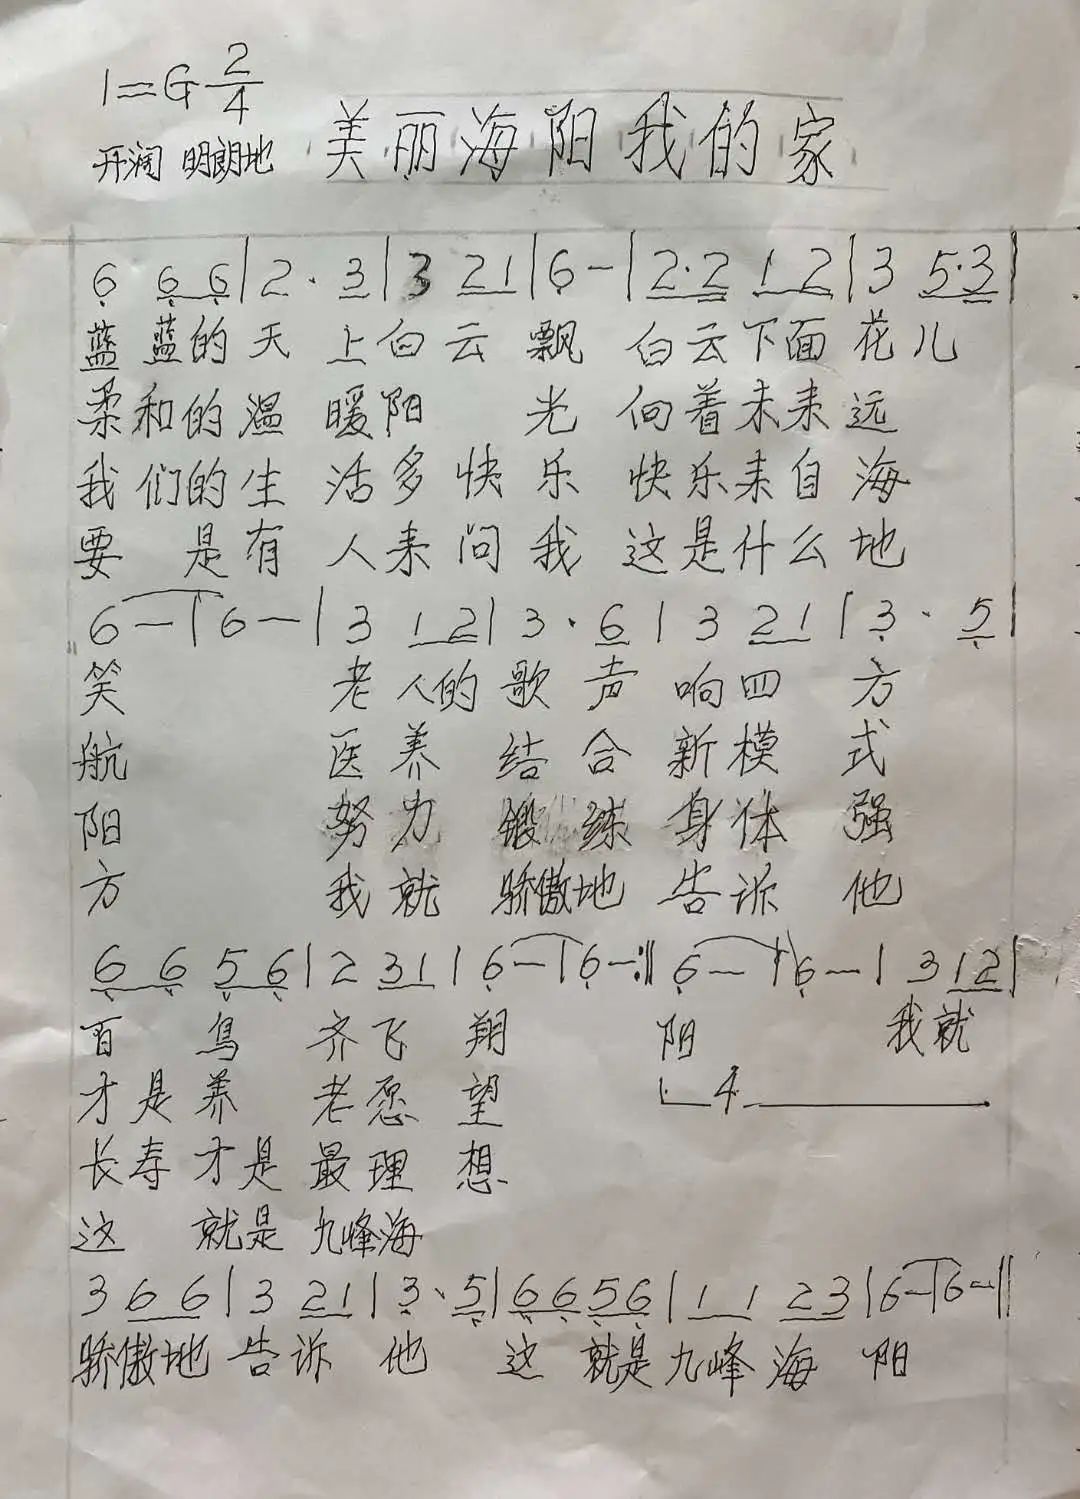 1=G 2/4
开润 明朗地 美丽海阳我的家
6 6 6 | 2 · 3 | 3 2 1 | 6 - | 2 · 2 1 2 | 3 5 · 3 |
蓝 蓝的 天 上白云 飘 白云下面花儿
柔和的温 暖阳 光 向着未来远
我们的生 活多快乐 快乐来自海
要 是有 人来问我 这是什么地
6 - | 6 - | 3 1 2 | 3 · 6 | 3 2 1 | 3 · 5 |
笑 老人的歌声 响四 方
航 医养 结合 新模 式
阳 努力 锻练 身体 强
方 我就 骄傲地 告诉 他
6 6 5 6 | 2 3 1 | 6 - | 6 - :‖ 6 - | 6 - | 3 1 2 |
百 鸟 齐飞 翔 阳 我就
才是养 老愿 望 4
长寿才是最理 想
这 就是 九峰海
3 6 6 | 3 2 1 | 3 · 5 | 6 6 5 6 | 1 1 2 3 | 6 - | 6 - ‖
骄傲地 告诉 他 这 就是九峰 海 阳